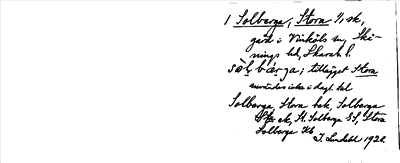 1 Solberga, Stora 1/1 sk,
gård i Vinköls sn, Ski-
nings hd, Skarab. l.
sòlbærga; tillägget Stora
användes icke i dagl. tal
Solberga, Stora hsk, Solberga
St. Solberga SS, Stora
Solberga
J. Lindahl 1920.